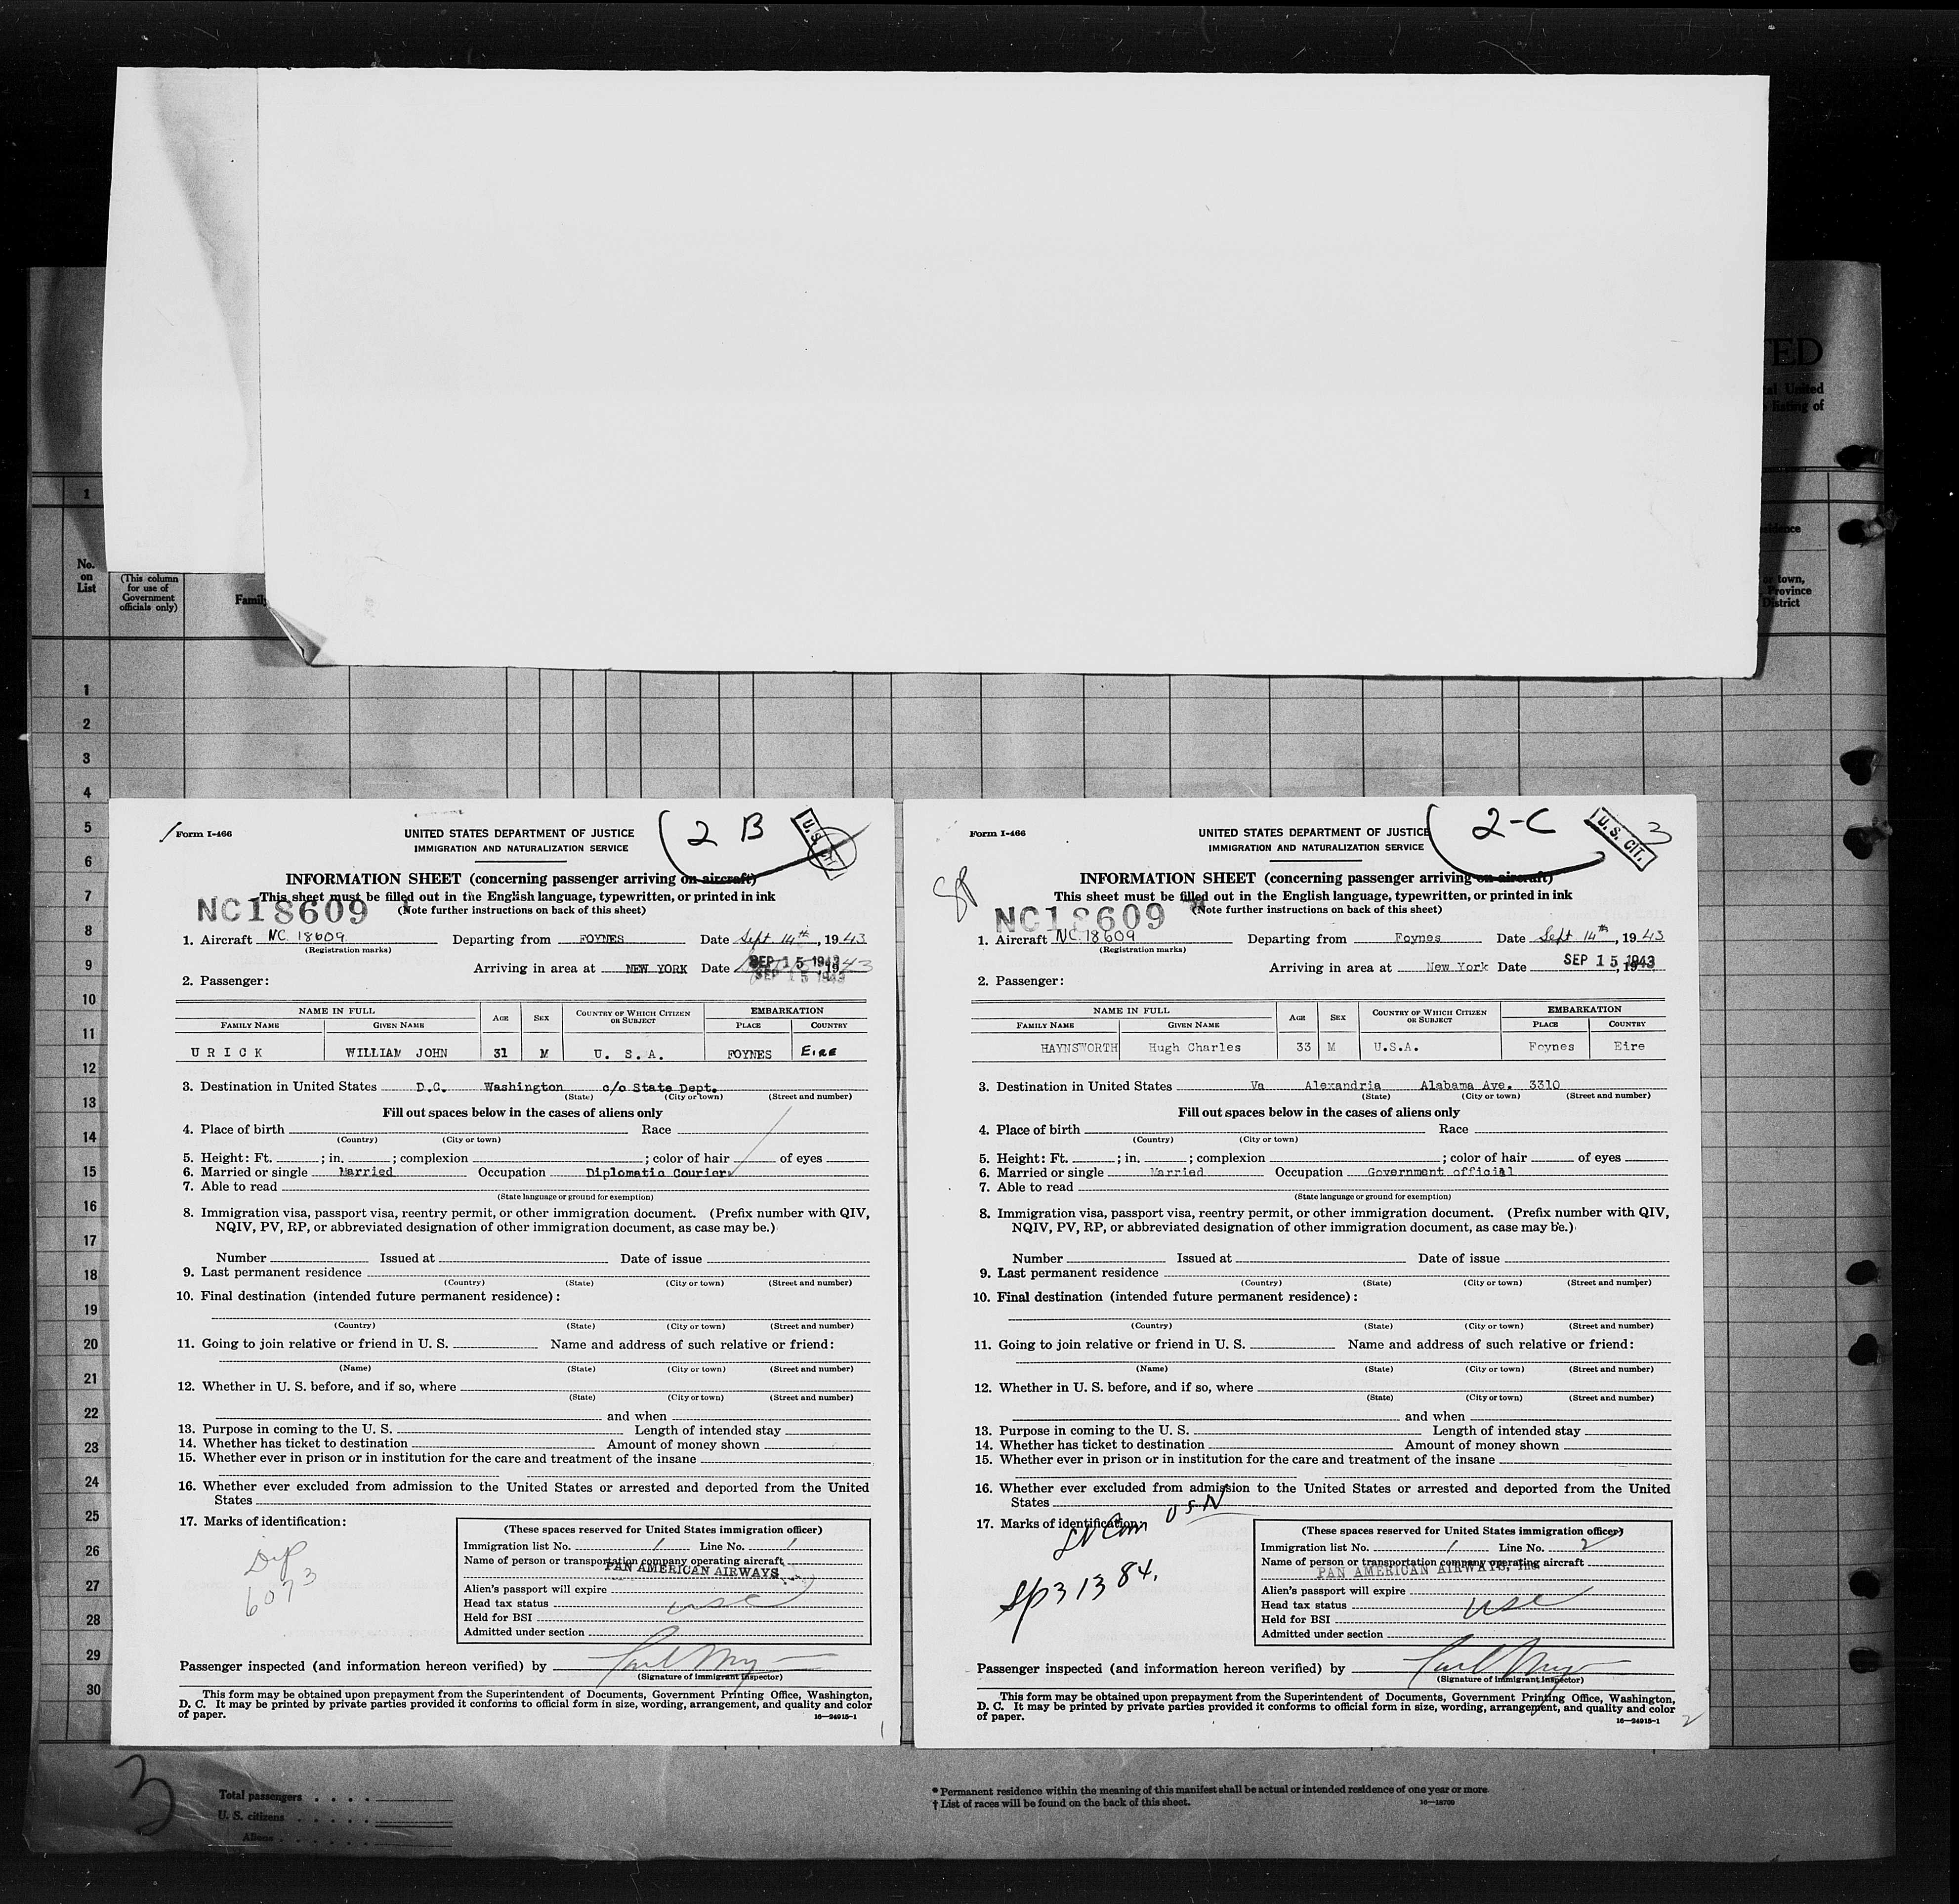 TED
tal United
listing of
1
No.
on
List
(This column
for use of
Government
officials only)
Famil
idence
or town,
Province
District
1
2
3
4
5
6
7
8
9
10
11
12
13
14
15
16
17
18
19
20
21
22
23
24
25
26
27
28
29
30
Form I-466
UNITED STATES DEPARTMENT OF JUSTICE
IMMIGRATION AND NATURALIZATION SERVICE
2 B
U.S. CIT.
INFORMATION SHEET (concerning passenger arriving on aircraft)
This sheet must be filled out in the English language, typewritten, or printed in ink
NC18609
(Note further instructions on back of this sheet)
1. Aircraft NC 18609 Departing from FOYNES Date Sept 14th, 1943
(Registration marks)
Arriving in area at NEW YORK Date SEP 15 1943, 1943
SEP 15 1943
2. Passenger:
NAME IN FULL AGE SEX COUNTRY OF WHICH CITIZEN OR SUBJECT EMBARKATION
FAMILY NAME GIVEN NAME PLACE COUNTRY
URICK WILLIAM JOHN 31 M U. S. A. FOYNES EIRE
3. Destination in United States D.C. Washington c/o State Dept.
(State) (City or town) (Street and number)
Fill out spaces below in the cases of aliens only
4. Place of birth Race
(Country) (City or town)
5. Height: Ft. ; in. ; complexion ; color of hair of eyes
6. Married or single Married Occupation Diplomatic Courier
7. Able to read
(State language or ground for exemption)
8. Immigration visa, passport visa, reentry permit, or other immigration document. (Prefix number with QIV,
NQIV, PV, RP, or abbreviated designation of other immigration document, as case may be.)
Number Issued at Date of issue
9. Last permanent residence
(Country) (State) (City or town) (Street and number)
10. Final destination (intended future permanent residence):
(Country) (State) (City or town) (Street and number)
11. Going to join relative or friend in U. S. Name and address of such relative or friend:
(Name) (State) (City or town) (Street and number)
12. Whether in U. S. before, and if so, where
(State) (City or town) (Street and number)
and when
13. Purpose in coming to the U. S. Length of intended stay
14. Whether has ticket to destination Amount of money shown
15. Whether ever in prison or in institution for the care and treatment of the insane
16. Whether ever excluded from admission to the United States or arrested and deported from the United
States
17. Marks of identification:
Dip
6073
(These spaces reserved for United States immigration officer)
Immigration list No. 1 Line No. 1
Name of person or transportation company operating aircraft
PAN AMERICAN AIRWAYS
Alien's passport will expire
Head tax status usc
Held for BSI
Admitted under section
Passenger inspected (and information hereon verified) by
(Signature of immigrant inspector)
This form may be obtained upon prepayment from the Superintendent of Documents, Government Printing Office, Washington,
D. C. It may be printed by private parties provided it conforms to official form in size, wording, arrangement, and quality and color
of paper.
16—24915-1
1
Form I-466
UNITED STATES DEPARTMENT OF JUSTICE
IMMIGRATION AND NATURALIZATION SERVICE
2-C
U. S. CIT.
3
INFORMATION SHEET (concerning passenger arriving on aircraft)
This sheet must be filled out in the English language, typewritten, or printed in ink
SP
NC18609
(Note further instructions on back of this sheet)
1. Aircraft NC 18609 Departing from Foynes Date Sept 14th, 1943
(Registration marks)
Arriving in area at New York Date SEP 15 1943, 19
2. Passenger:
NAME IN FULL AGE SEX COUNTRY OF WHICH CITIZEN OR SUBJECT EMBARKATION
FAMILY NAME GIVEN NAME PLACE COUNTRY
HAYNSWORTH Hugh Charles 33 M U.S.A. Foynes Eire
3. Destination in United States Va Alexandria Alabama Ave. 3310
(State) (City or town) (Street and number)
Fill out spaces below in the cases of aliens only
4. Place of birth Race
(Country) (City or town)
5. Height: Ft. ; in. ; complexion ; color of hair of eyes
6. Married or single Married Occupation Government official
7. Able to read
(State language or ground for exemption)
8. Immigration visa, passport visa, reentry permit, or other immigration document. (Prefix number with QIV,
NQIV, PV, RP, or abbreviated designation of other immigration document, as case may be.)
Number Issued at Date of issue
9. Last permanent residence
(Country) (State) (City or town) (Street and number)
10. Final destination (intended future permanent residence):
(Country) (State) (City or town) (Street and number)
11. Going to join relative or friend in U. S. Name and address of such relative or friend:
(Name) (State) (City or town) (Street and number)
12. Whether in U. S. before, and if so, where
(State) (City or town) (Street and number)
and when
13. Purpose in coming to the U. S. Length of intended stay
14. Whether has ticket to destination Amount of money shown
15. Whether ever in prison or in institution for the care and treatment of the insane
16. Whether ever excluded from admission to the United States or arrested and deported from the United
States
17. Marks of identification:
Lt Com USN
Sp 31384.
(These spaces reserved for United States immigration officer)
Immigration list No. 1 Line No. 2
Name of person or transportation company operating aircraft
PAN AMERICAN AIRWAYS, Inc
Alien's passport will expire
Head tax status usc
Held for BSI
Admitted under section
Passenger inspected (and information hereon verified) by
(Signature of immigrant inspector)
This form may be obtained upon prepayment from the Superintendent of Documents, Government Printing Office, Washington,
D. C. It may be printed by private parties provided it conforms to official form in size, wording, arrangement, and quality and color
of paper.
16—24915-1
2
3
Total passengers
U. S. citizens
Aliens
* Permanent residence within the meaning of this manifest shall be actual or intended residence of one year or more.
† List of races will be found on the back of this sheet.
16—18709